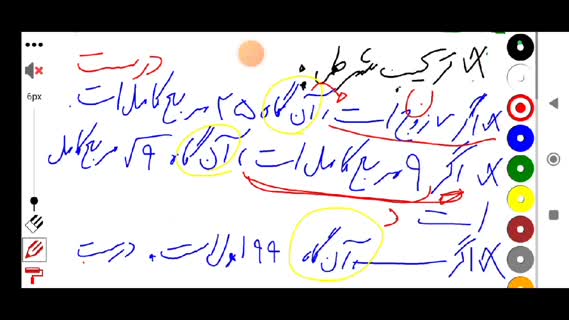 ترکیب شرطی:
درست
اگر ۷ زوج است، آن گاه ۲۵ مربع کامل است.
(ن)
اگر ۹ مربع کامل است، آن گاه √۹ مربع کامل
است د
اگر ــــ، آن گاه ۱۹۹ اول است. درست
6px